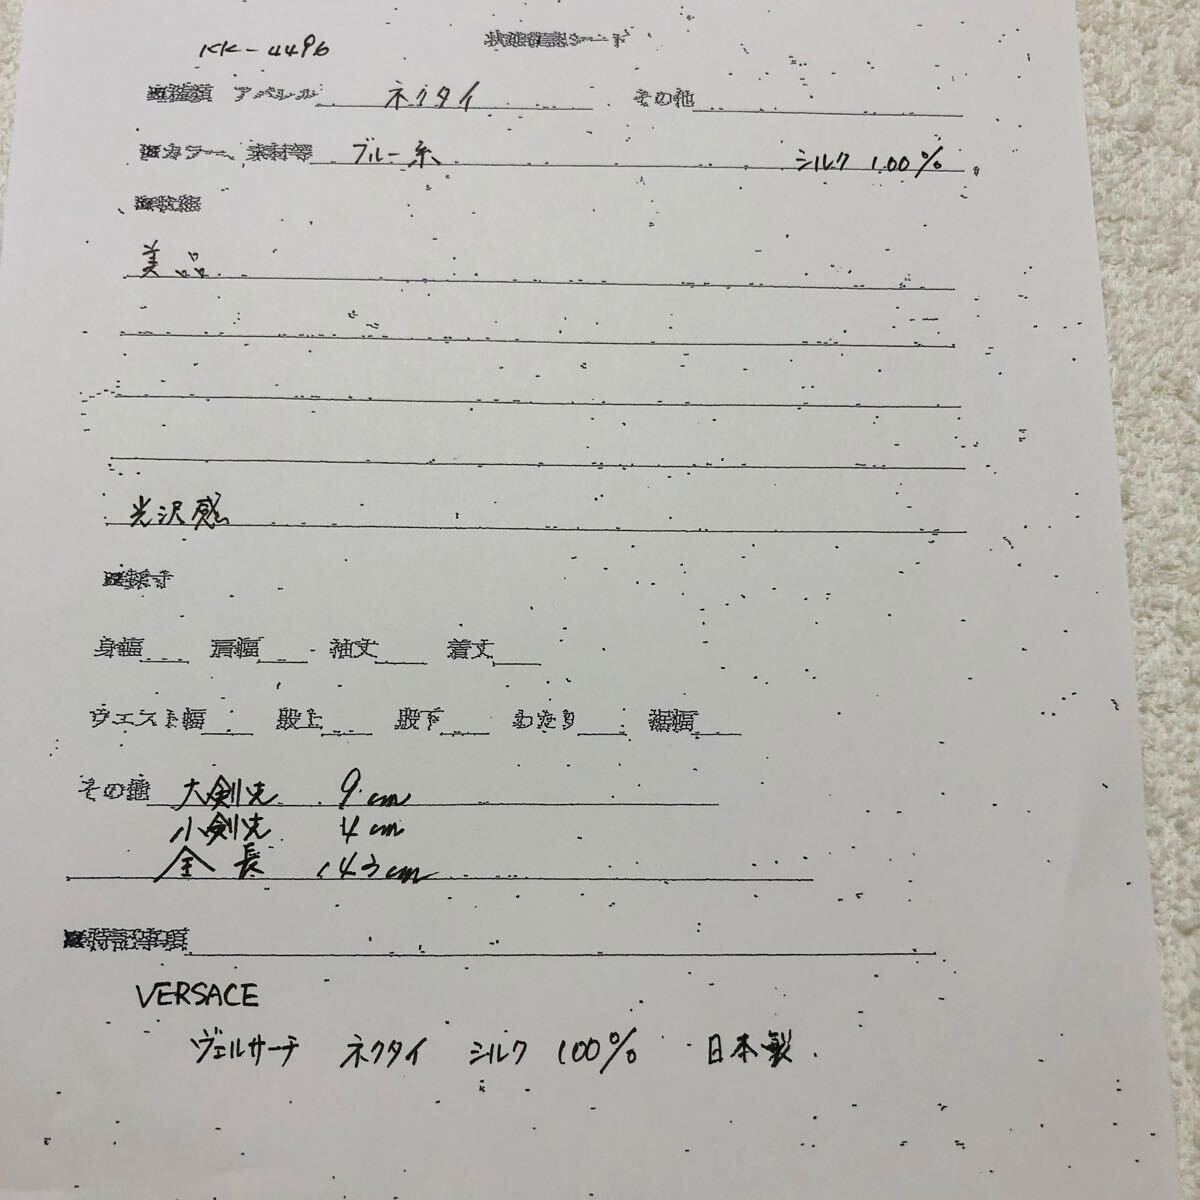 KK-4496 状態確認シート
※種類 アパレル ネクタイ その他
※カラー、素材等 ブルー系 シルク 100%
※状態
美品
光沢感
※採寸
身幅 肩幅 袖丈 着丈
ウエスト幅 股上 股下 わたり 裾幅
その他 大剣先 9cm
小剣先 4cm
全長 143cm
※特記事項
VERSACE
ヴェルサーチ ネクタイ シルク 100% 日本製